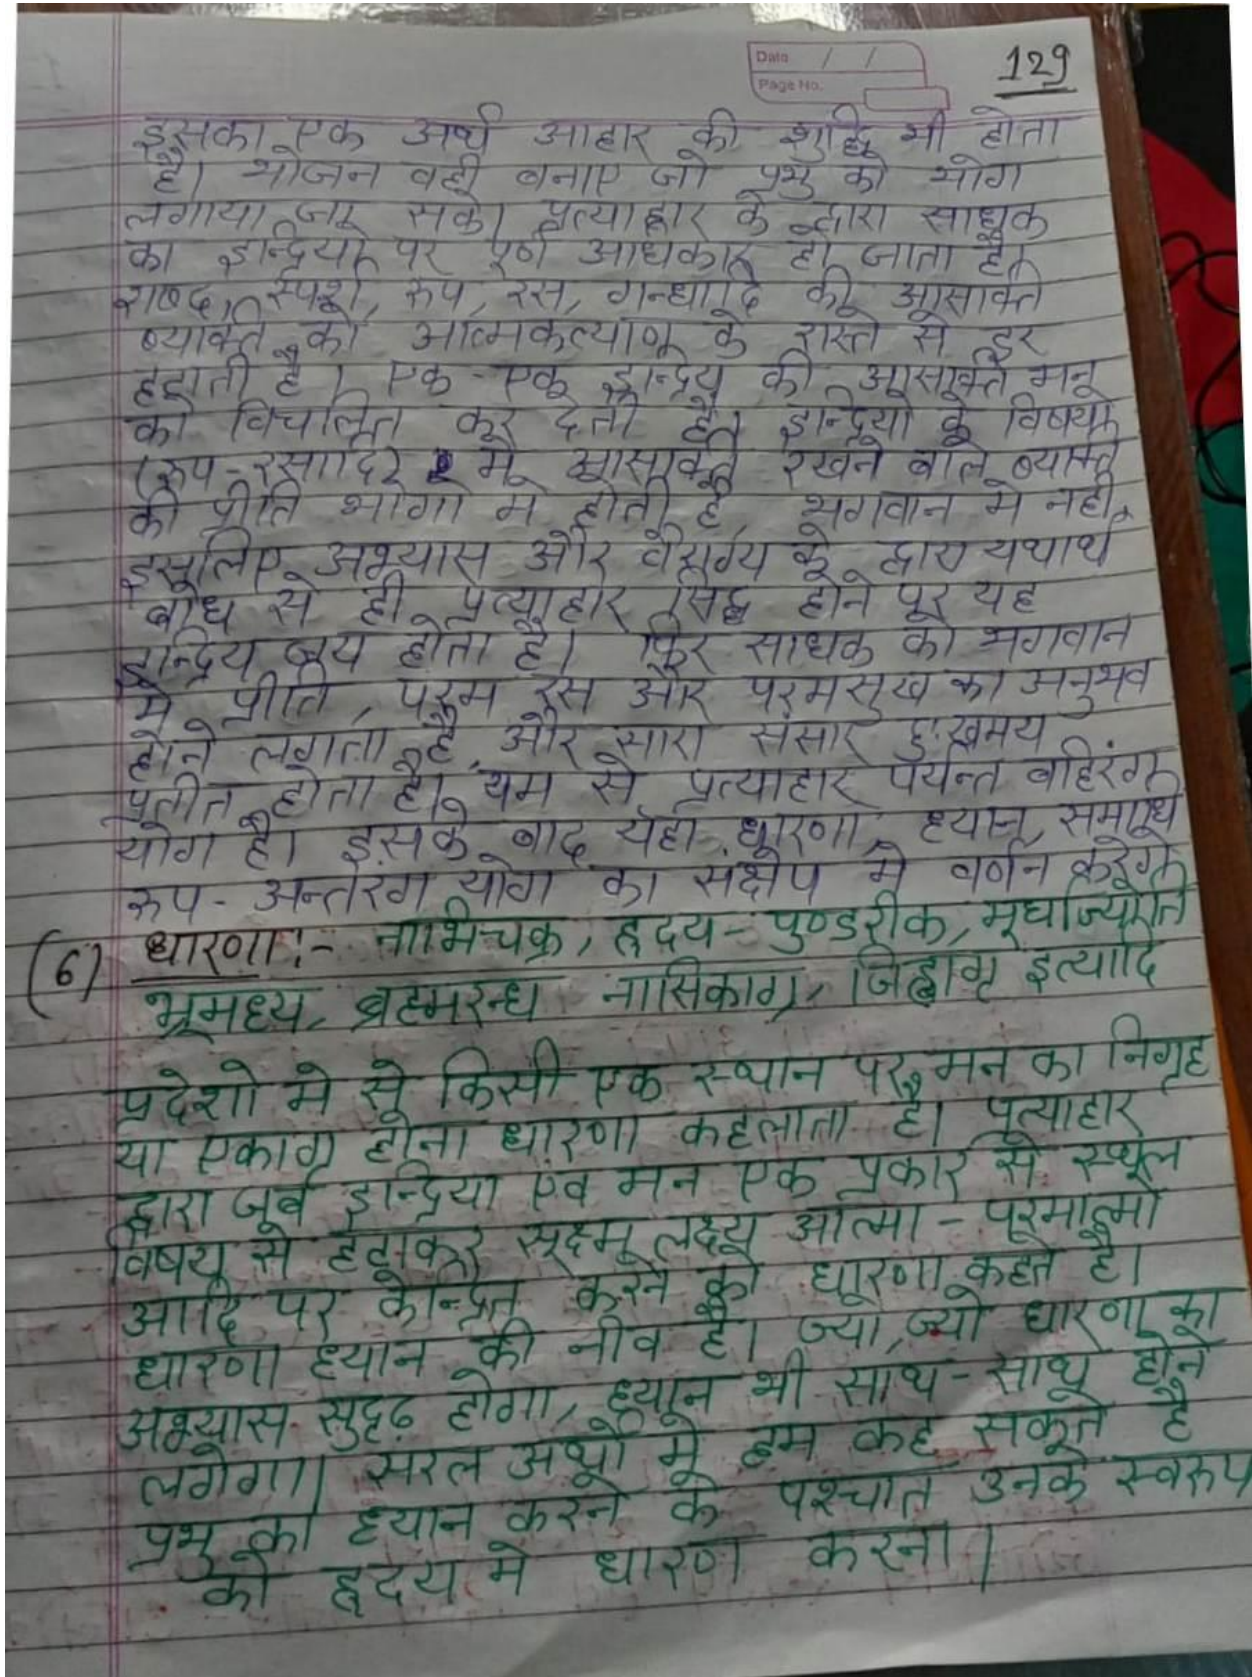 Date / /
Page No.
129
इसका एक अर्थ आहार की शुद्धि भी होता
है। भोजन वही बनाए जो प्रभु को भोग
लगाया जा सके। प्रत्याहार के द्वारा साधक
का इन्द्रियों पर पूर्ण अधिकार हो जाता है।
शब्द, स्पर्श, रुप, रस, गन्धादि की आसक्ति
व्यक्ति को आत्मकल्याण के रास्ते से दूर
हटाती है। एक-एक इन्द्रिय की आसक्ति मन
को विचलित कर देती है। इन्द्रियों के विषयों
(रुप-रसादि) में आसक्ति रखने वाले व्यक्ति
की प्रीति भोगों में होती है, भगवान में नहीं,
इसलिए अभ्यास और वैराग्य के द्वारा यथार्थ
बोध से ही प्रत्याहार सिद्ध होने पर यह
इन्द्रिय जय होता है। फिर साधक को भगवान
में प्रीति, परम रस और परमसुख का अनुभव
होने लगता है, और सारा संसार दुःखमय
प्रतीत होता है। यम से प्रत्याहार पर्यन्त बहिरंग
योग है। इसके बाद यहाँ धारणा, ध्यान, समाधि
रुप- अन्तरंग योग का संक्षेप में वर्णन करेंगे
(6) धारणा:- नाभिचक्र, हृदय-पुण्डरीक, मूर्धाज्योति
भ्रूमध्य, ब्रह्मरन्ध्र नासिकाग्र, जिह्वाग्र इत्यादि
प्रदेशों में से किसी एक स्थान पर मन का निग्रह
या एकाग्र होना धारणा कहलाता है। प्रत्याहार
द्वारा जब इन्द्रियां एवं मन एक प्रकार से स्थूल
विषय से हटाकर सूक्ष्म लक्ष्य आत्मा - परमात्मा
आदि पर केन्द्रित करने को धारणा कहते हैं।
धारणा ध्यान की नींव है। ज्यों, ज्यों धारणा का
अभ्यास सुदृढ़ होगा, ध्यान भी साथ-साथ होने
लगेगा। सरल अर्थों में हम कह सकते है
प्रभु का ध्यान करने के पश्चात उनके स्वरुप
को हृदय में धारण करना।